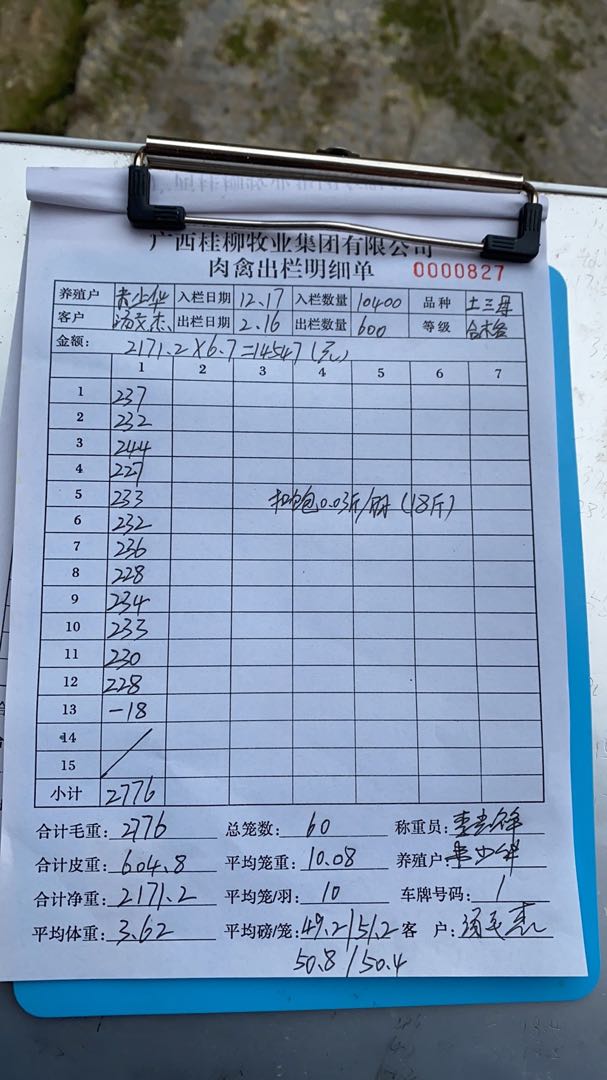 广西桂柳牧业集团有限公司
肉禽出栏明细单 0000827
养殖户 入栏日期 12.17 入栏数量 10400 品种 土三号
客户 汤文杰 出栏日期 2.16 出栏数量 600 等级 合格
金额: 2171.2×6.7=14547(元)
1 2 3 4 5 6 7
1 237
2 232
3 244
4 227
5 233 扣包0.03斤/羽(18斤)
6 232
7 236
8 228
9 234
10 233
11 230
12 228
13 -18
14
15
小计 2776
合计毛重: 2776 总笼数: 60 称重员:
合计皮重: 604.8 平均笼重: 10.08 养殖户:
合计净重: 2171.2 平均笼/羽: 10 车牌号码: 1
平均体重: 3.62 平均磅/笼: 49.2/51.2 客 户: 汤文杰
50.8/50.4